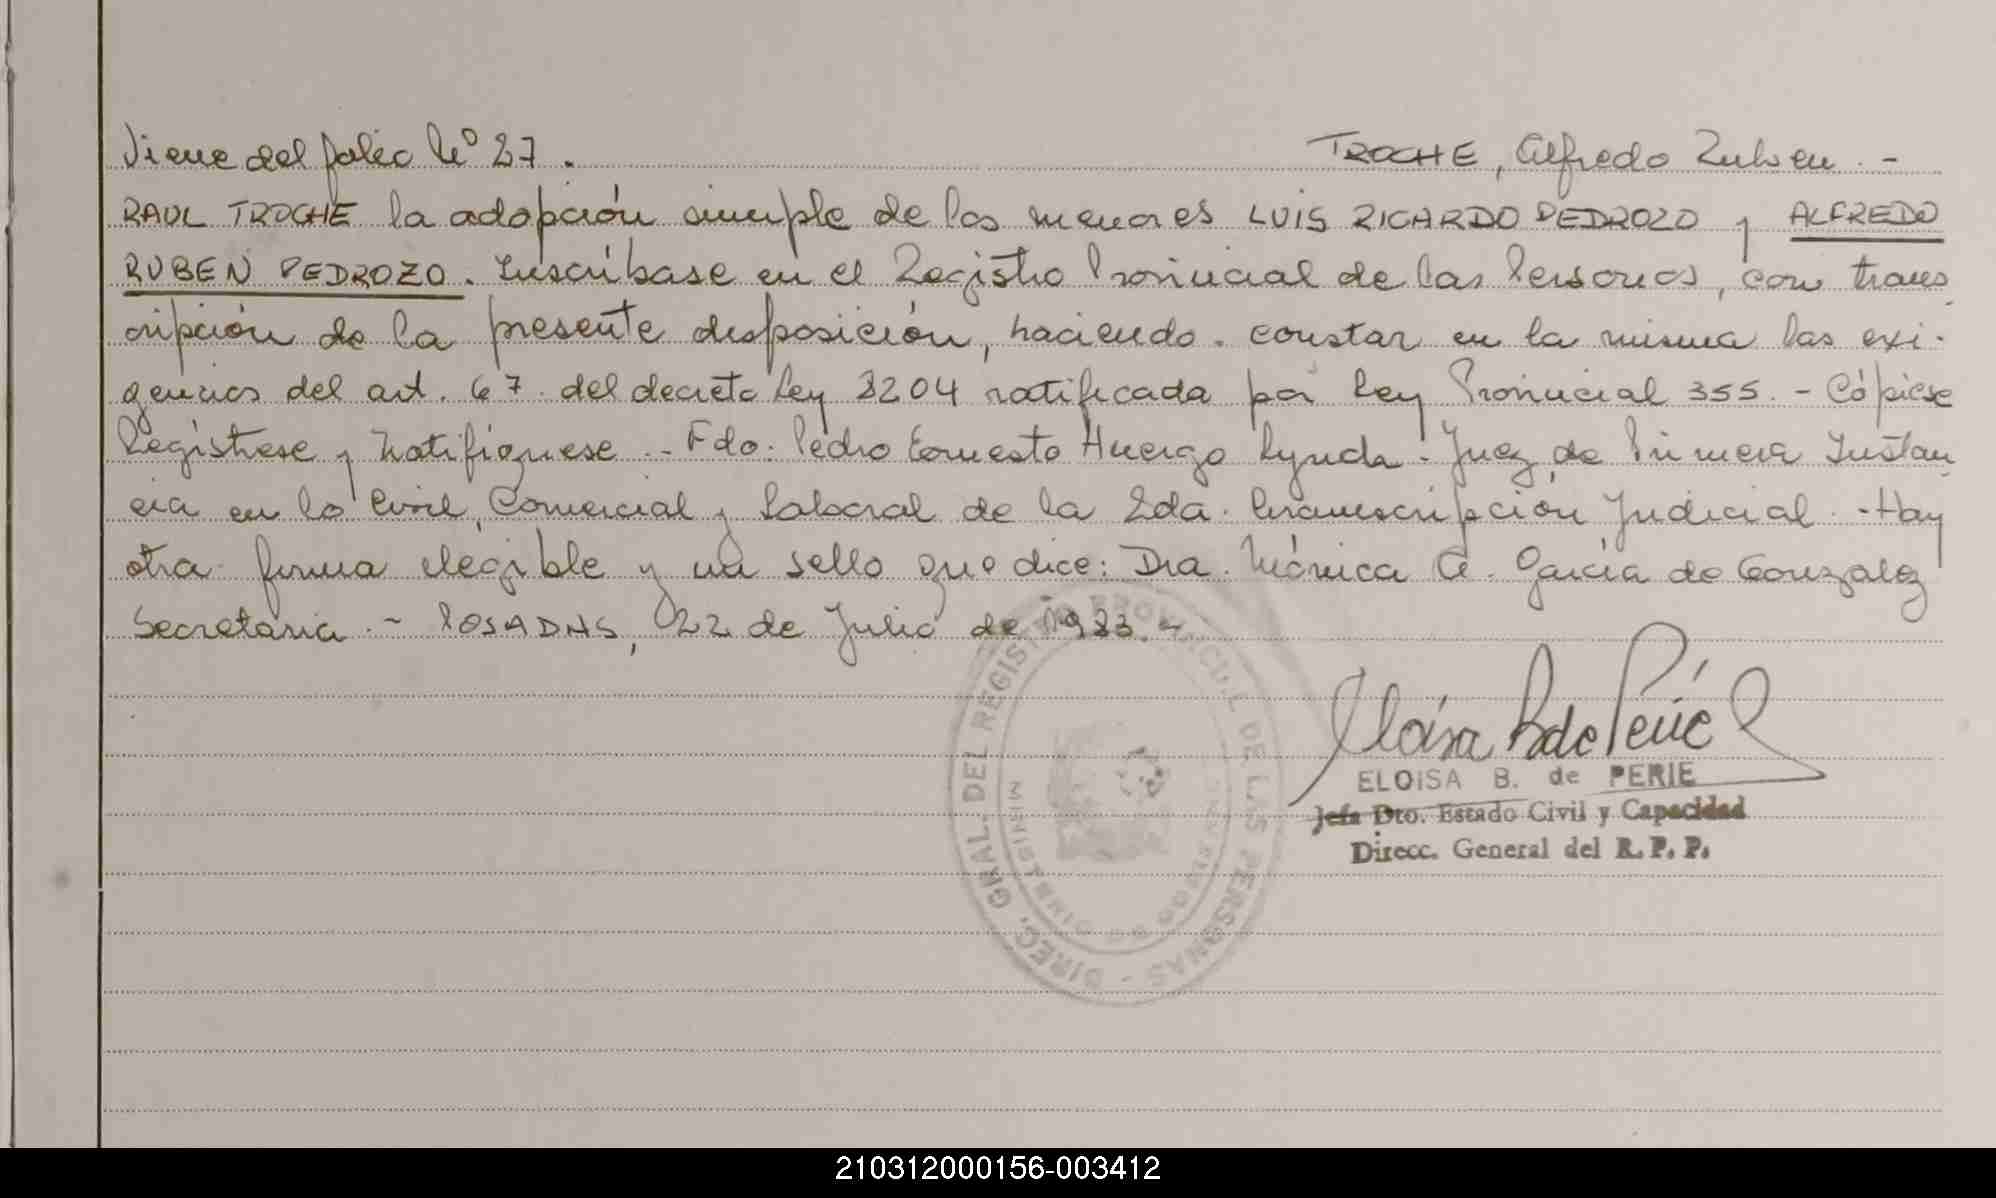 Viene del folio Nº 27. TROCHE, Alfredo Ruben. -
RAUL TROCHE la adopción simple de los menores LUIS RICARDO PEDROZO y ALFREDO
RUBEN PEDROZO. Inscríbase en el Registro Provincial de las Personas, con trans
cripción de la presente disposición, haciendo constar en la misma las exi-
gencias del art. 67 del decreto Ley 8204 ratificada por Ley Provincial 355. - Cópiese
Regístrese y Notifíquese. - Fdo: Pedro Ernesto Huergo Juez de Primera Instan
cia en lo Civil, Comercial y Laboral de la 2da. Circunscripción Judicial. - Hay
otra firma ilegible y un sello que dice: Dra. Mónica A. García de Gonzalez
Secretaria. - POSADAS, 22 de Julio de 1983. -
ELOISA B. de PERIE
Jefa Dto. Estado Civil y Capacidad
Direcc. General del R. P. P.
DIREC. GRAL. DEL REGISTRO PROVINCIAL DE LAS PERSONAS -
MINISTERIO DE GOBIERNO
210312000156-003412